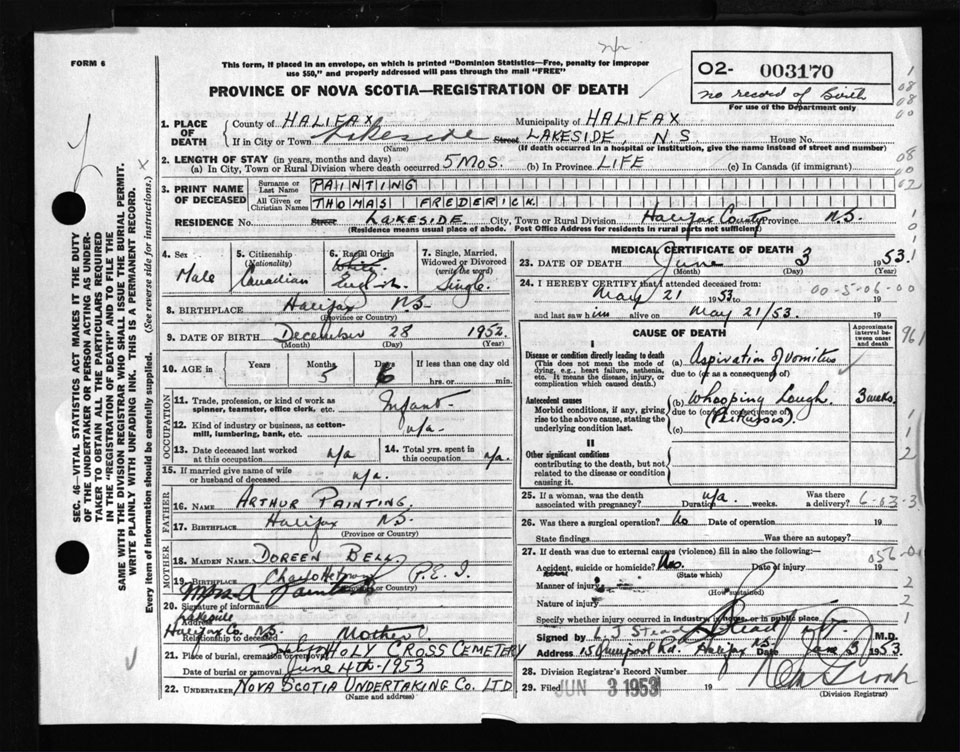 FORM 6
This form, if placed in an envelope, on which is printed "Dominion Statistics—Free, penalty for improper
use $50," and properly addressed will pass through the mail "FREE"
PROVINCE OF NOVA SCOTIA—REGISTRATION OF DEATH
02- 003170
no record of birth
For use of the Department only
1. PLACE OF DEATH
County of HALIFAX Municipality of HALIFAX
If in City or Town Lakeside Street LAKESIDE, N.S. House No.
(Name) (If death occurred in a hospital or institution, give the name instead of street and number)
2. LENGTH OF STAY (in years, months and days)
(a) In City, Town or Rural Division where death occurred 5 MOS. (b) In Province LIFE (c) In Canada (if immigrant)
3. PRINT NAME OF DECEASED
Surname or Last Name PAINTING
All Given or Christian Names THOMAS FREDERICK
RESIDENCE No. Street LAKESIDE. City, Town or Rural Division Halifax County Province N.S.
(Residence means usual place of abode. Post Office Address for residents in rural parts not sufficient)
4. Sex Male
5. Citizenship (Nationality) Canadian
6. Racial Origin White English
7. Single, Married, Widowed or Divorced (write the word) Single
8. BIRTHPLACE Halifax N.S.
(Province or Country)
9. DATE OF BIRTH December 28 1952
(Month) (Day) (Year)
10. AGE in Years Months 5 Days 6 If less than one day old hrs. or min.
OCCUPATION
11. Trade, profession, or kind of work as spinner, teamster, office clerk, etc. Infant
12. Kind of industry or business, as cotton-mill, lumbering, bank, etc. n/a
13. Date deceased last worked at this occupation n/a
14. Total yrs. spent in this occupation n/a.
15. If married give name of wife or husband of deceased n/a.
FATHER
16. NAME ARTHUR PAINTING
17. BIRTHPLACE Halifax N.S.
(Province or Country)
MOTHER
18. MAIDEN NAME DOREEN BELL
19. BIRTHPLACE Charlottetown P.E.I.
(Province or Country)
Mrs. A Painting
20. Signature of informant
Lakeside
Halifax Co. N.S.
Relationship to deceased Mother
21. Place of burial, cremation or removal HOLY CROSS CEMETERY
Date of burial or removal June 4th-1953
22. UNDERTAKER NOVA SCOTIA UNDERTAKING CO. LTD
(Name and address)
MEDICAL CERTIFICATE OF DEATH
23. DATE OF DEATH June 3 1953.
(Month) (Day) (Year)
24. I HEREBY CERTIFY that I attended deceased from
May 21 1953 to 19
00-5-06-00
and last saw him alive on May 21/53. 19
CAUSE OF DEATH
Approximate interval between onset and death
I
Disease or condition directly leading to death
(This does not mean the mode of dying, e.g., heart failure, asthenia, etc. It means the disease, injury, or complication which caused death.)
(a) Aspiration of Vomitus
due to (or as a consequence of)
Antecedent causes
Morbid conditions, if any, giving rise to the above cause, stating the underlying condition last.
(b) Whooping Cough. 3 weeks.
due to (or as a consequence of)
(Pertussis).
(c)
II
Other significant conditions
contributing to the death, but not related to the disease or condition causing it.
25. If a woman, was the death associated with pregnancy? n/a. Duration weeks. Was there a delivery?
6-03-3
26. Was there a surgical operation? No Date of operation 19
State findings Was there an autopsy?
27. If death was due to external causes (violence) fill in also the following:—
Accident, suicide or homicide? No. Date of injury 19
(State which)
056-0
Manner of injury
(How sustained)
Nature of injury
Specify whether injury occurred in industry, in home, or in public place.
Signed by M.D.
Address 15 Liverpool Rd. Halifax N.S. Date June 3 1953.
28. Division Registrar's Record Number
29. Filed JUN 3 1953 19
(Division Registrar)
SEC. 46—VITAL STATISTICS ACT MAKES IT THE DUTY
OF THE UNDERTAKER OR PERSON ACTING AS UNDER-
TAKER TO OBTAIN ALL THE PARTICULARS REQUIRED
IN THE "REGISTRATION OF DEATH" AND TO FILE THE
SAME WITH THE DIVISION REGISTRAR WHO SHALL ISSUE THE BURIAL PERMIT.
WRITE PLAINLY WITH UNFADING INK. THIS IS A PERMANENT RECORD.
Every item of information should be carefully supplied. (See reverse side for instructions.)